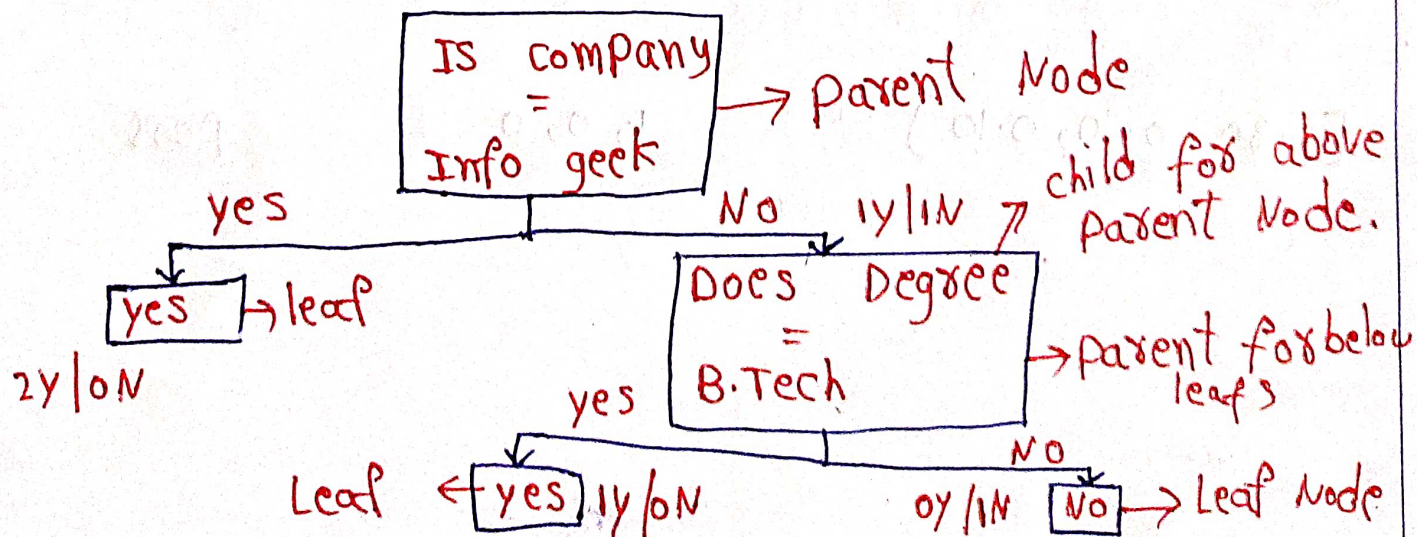 IS company
=
Info geek
→ Parent Node
child for above
Parent Node.
yes
NO
1Y|1N
yes
→ leaf
2Y|0N
Does Degree
=
B.Tech
→ parent for below
leafs
yes
NO
Leaf ←
yes
1Y/0N
0Y/1N
No
→ Leaf Node